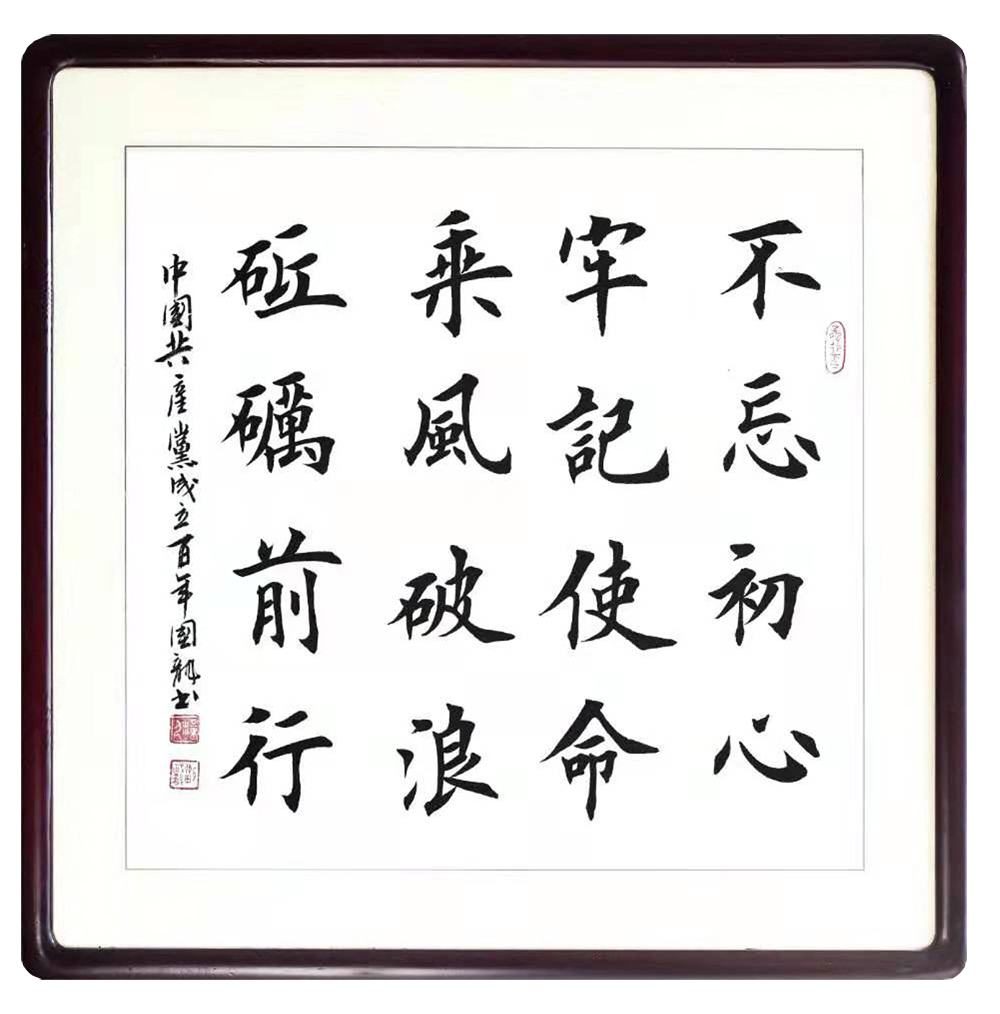 不忘初心
牢記使命
乘風破浪
砥礪前行
中國共產黨成立百年國龍书